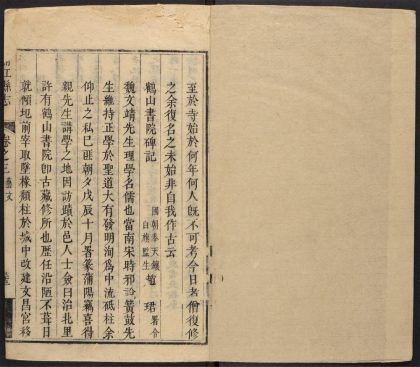 至於寺始於何年何人旣不可考今日老僧復修
之余復名之未始非自我作古云
鶴山書院碑記
國朝奉天鑲
白旗監生
趙珺
署令
魏文靖先生理學名儒也當南宋時邪說簧鼓先
生維持正學於聖道大有發明洵爲中流砥柱余
仰止之私已匪朝夕戊辰十月署篆蒲陽竊喜得
親先生講學之地因訪蹟於邑人士僉曰治北里
許有鶴山書院卽古藏修所也歷任沿陋不葺日
就傾圯前宰取墜橡頹柱於城中改建文昌宮移
江縣志
卷之三
藝文